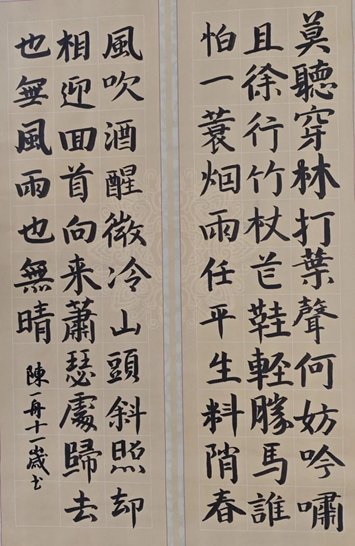 莫聽穿林打葉聲何妨吟嘯
且徐行竹杖芒鞋輕勝馬誰
怕一蓑烟雨任平生料陗春
風吹酒醒微冷山頭斜照却
相迎回首向来蕭瑟處歸去
也無風雨也無晴
陳一舟十一歲书